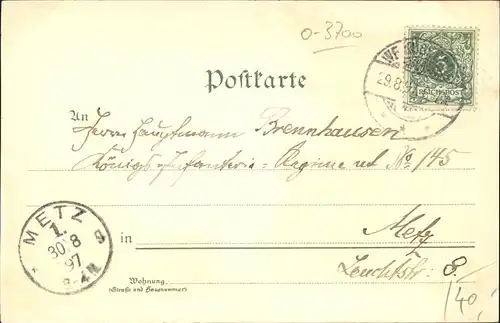 0-3700
REICHSPOST
29.8.
Postkarte
An
Herrn Hauptmann Brennhausen
Königs-Infanterie-Regiment No 145
METZ
1.
30 8
97
in Metz
Wohnung
(Straße und Hausnummer)
Leuchtstr: 8.
/40